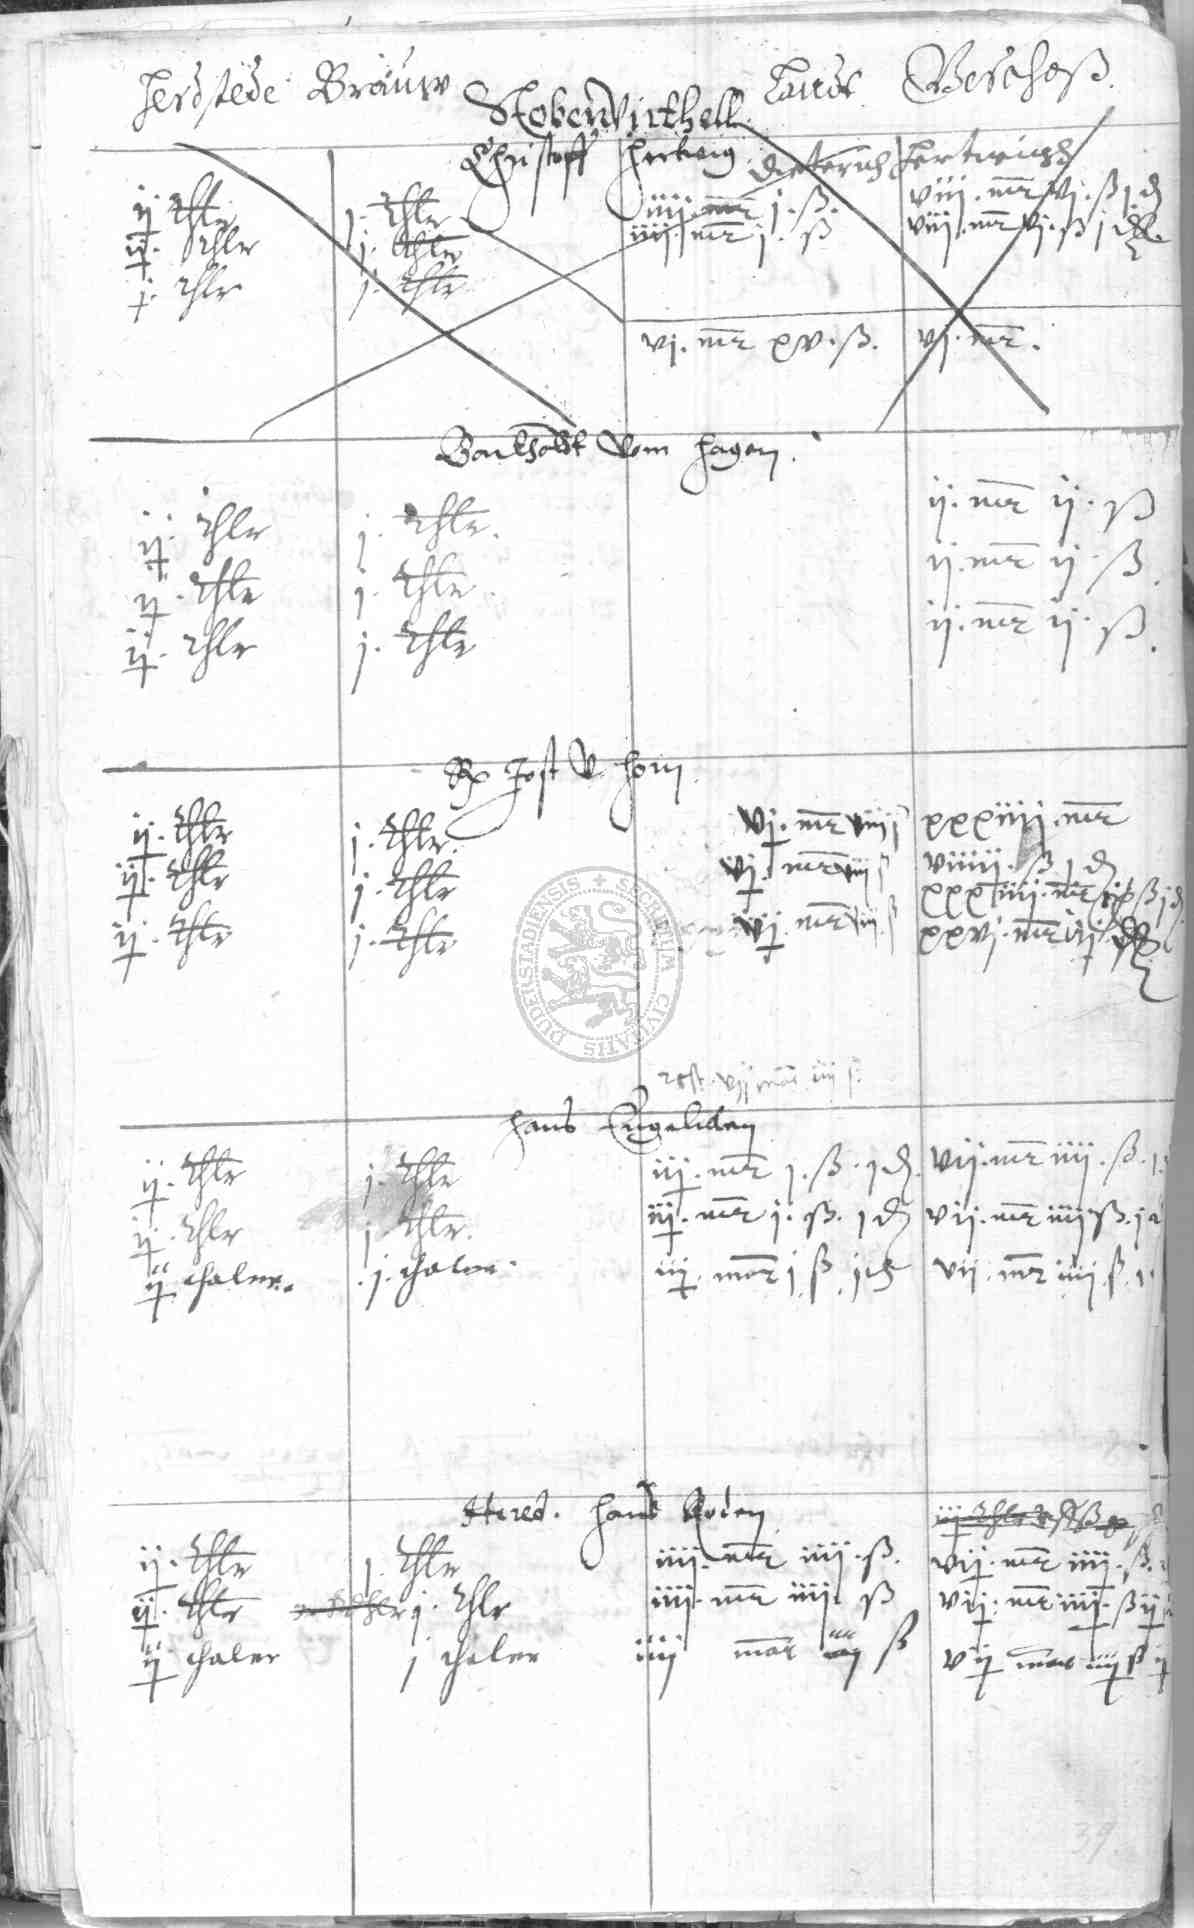 Herdstede Brauw Lande Geschoß.
Stobenvirthell
Christoff Hertwig Dieterich Hertwigh
ij thlr j. thlr iiij. mr j. ß. viij. mr vj. ß j d
ij. thlr j. thlr iiij. mr j. ß viij. mr vj. ß j d
j. thlr j. thlr
vj. mr xv. ß. vj. mr.
vom Hagen.
ij. thlr j. thlr. ij. mr ij. ß
ij. thlr j. thlr ij. mr ij. ß.
ij. thlr j. thlr ij. mr ij. ß.
Jost v Horn
ij. thlr j. thlr. vj. mr xxxiiij. mr
ij. thlr j. thlr vj. mr xxxiiij. mr
ij. thlr j. thlr vj. mr xxvj. mr
SECRETUM CIVITATIS DUDERSTADENSIS
rest. vij mar iiij ß.
Hans Engelken
ij. thlr j. thlr iij. mr j. ß. j d. vij. mr iiij. ß. j
ij. thlr j. thlr. iij. mr j. ß. j d vij. mr iiij ß. j d
ij thaler. j. thaler. iij. mar j ß. j d vij. mr iiij ß. j
Hered. Hans Roden
ij. thlr j. thlr iiij. mr iiij. ß. vij. mr iiij. ß.
ij. thlr j. thlr iiij. mr iiij. ß vij. mr iiij. ß ij
ij thaler j thaler iiij mar ß vij mar iiij ß ij
39